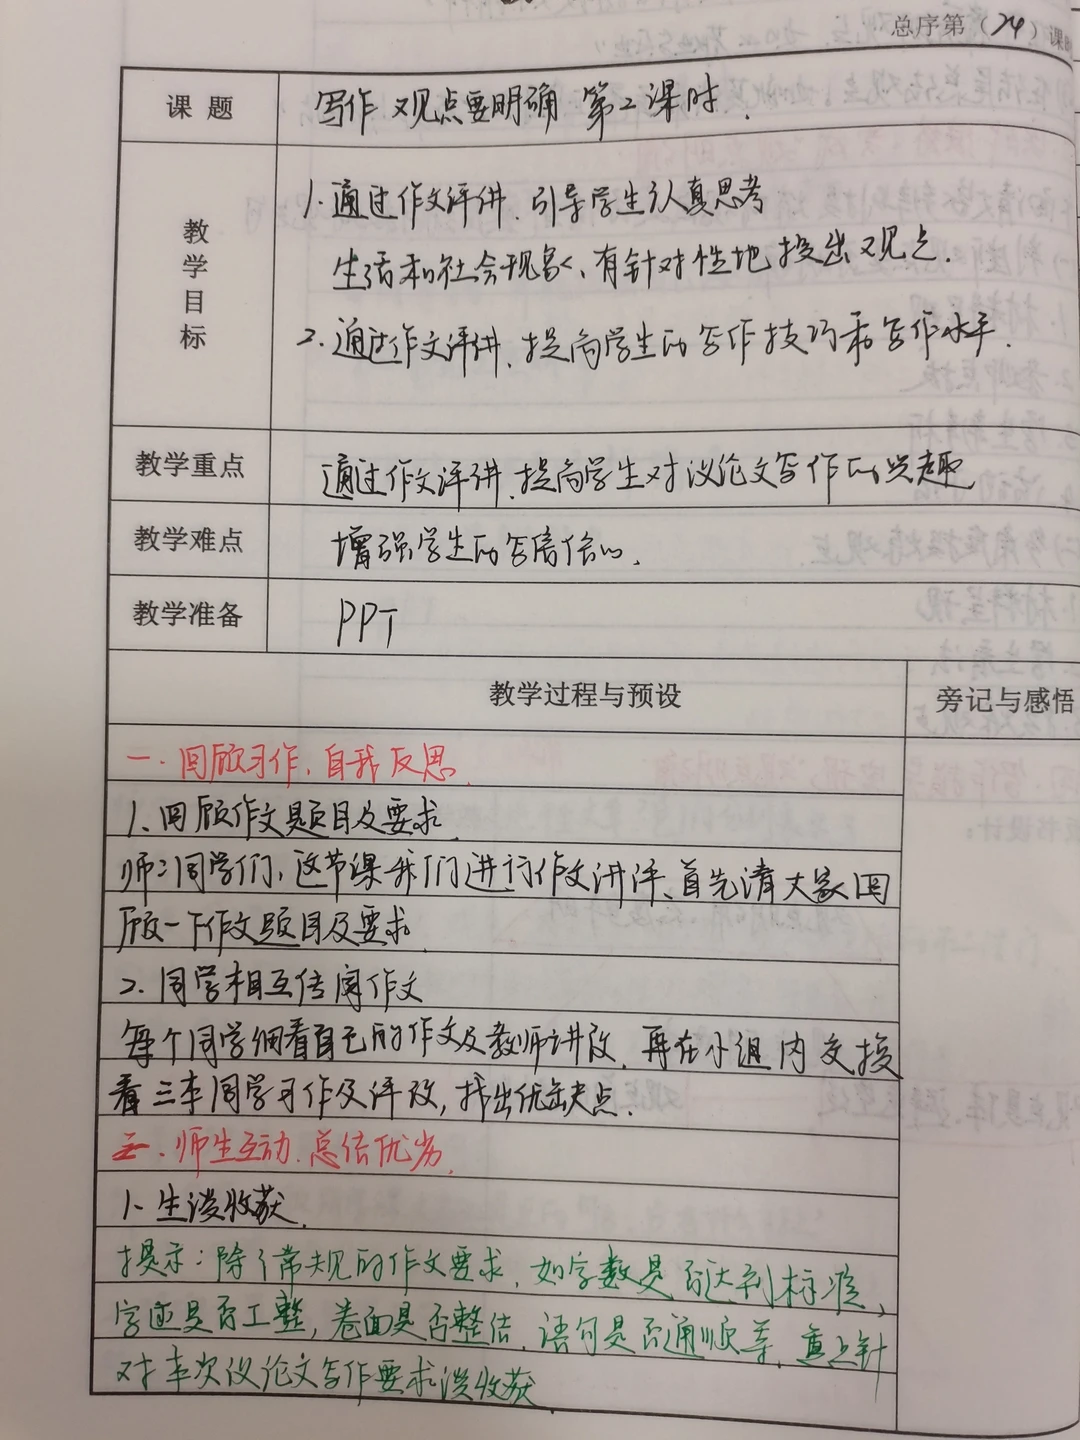 总序第（24）课时
课题 写作 观点要明确 第2课时.
教学目标
1.通过作文评讲、引导学生认真思考
生活和社会现象、有针对性地提出观点.
2.通过作文评讲、提高学生的写作技巧和写作水平.
教学重点 通过作文评讲、提高学生对议论文写作的兴趣
教学难点 增强学生的写信心.
教学准备 PPT
教学过程与预设 旁记与感悟
一、回顾习作、自我反思
1、回顾作文题目及要求
师:同学们,这节课我们进行作文讲评、首先请大家回
顾一下作文题目及要求
2.同学相互传阅作文
每个同学细看自己的作文及教师讲改、再在小组内交换
看三本同学习作及评改,找出优缺点.
二、师生互动、总结优劣
1、生谈收获
提示:除了常规的作文要求、如字数是否达到标准、
字迹是否工整,卷面是否整洁、语句是否通顺等、重点针
对本次议论文写作要求谈收获